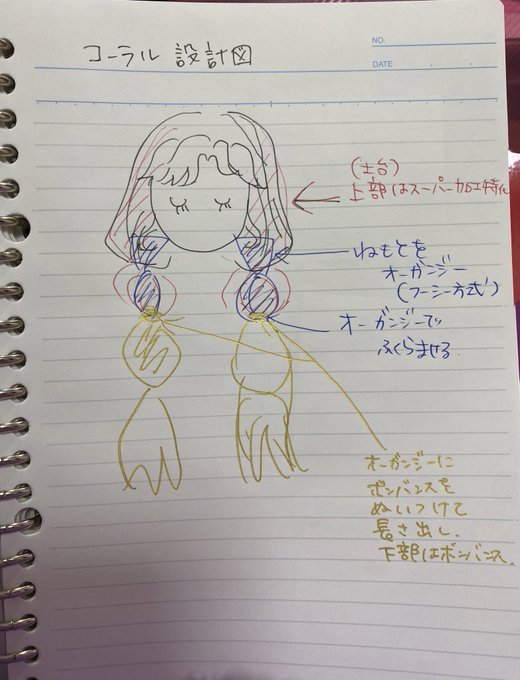 コーラル 設計図
NO.
DATE
(土台)
上部はスーパー加工特化
ねもとを
オーガンジー
(フーシー方式)
オーガンジーで
ふくらませる
オーガンジーに
ボンバンスを
ぬいつけて
長さ出し、
下部はボンバンス。